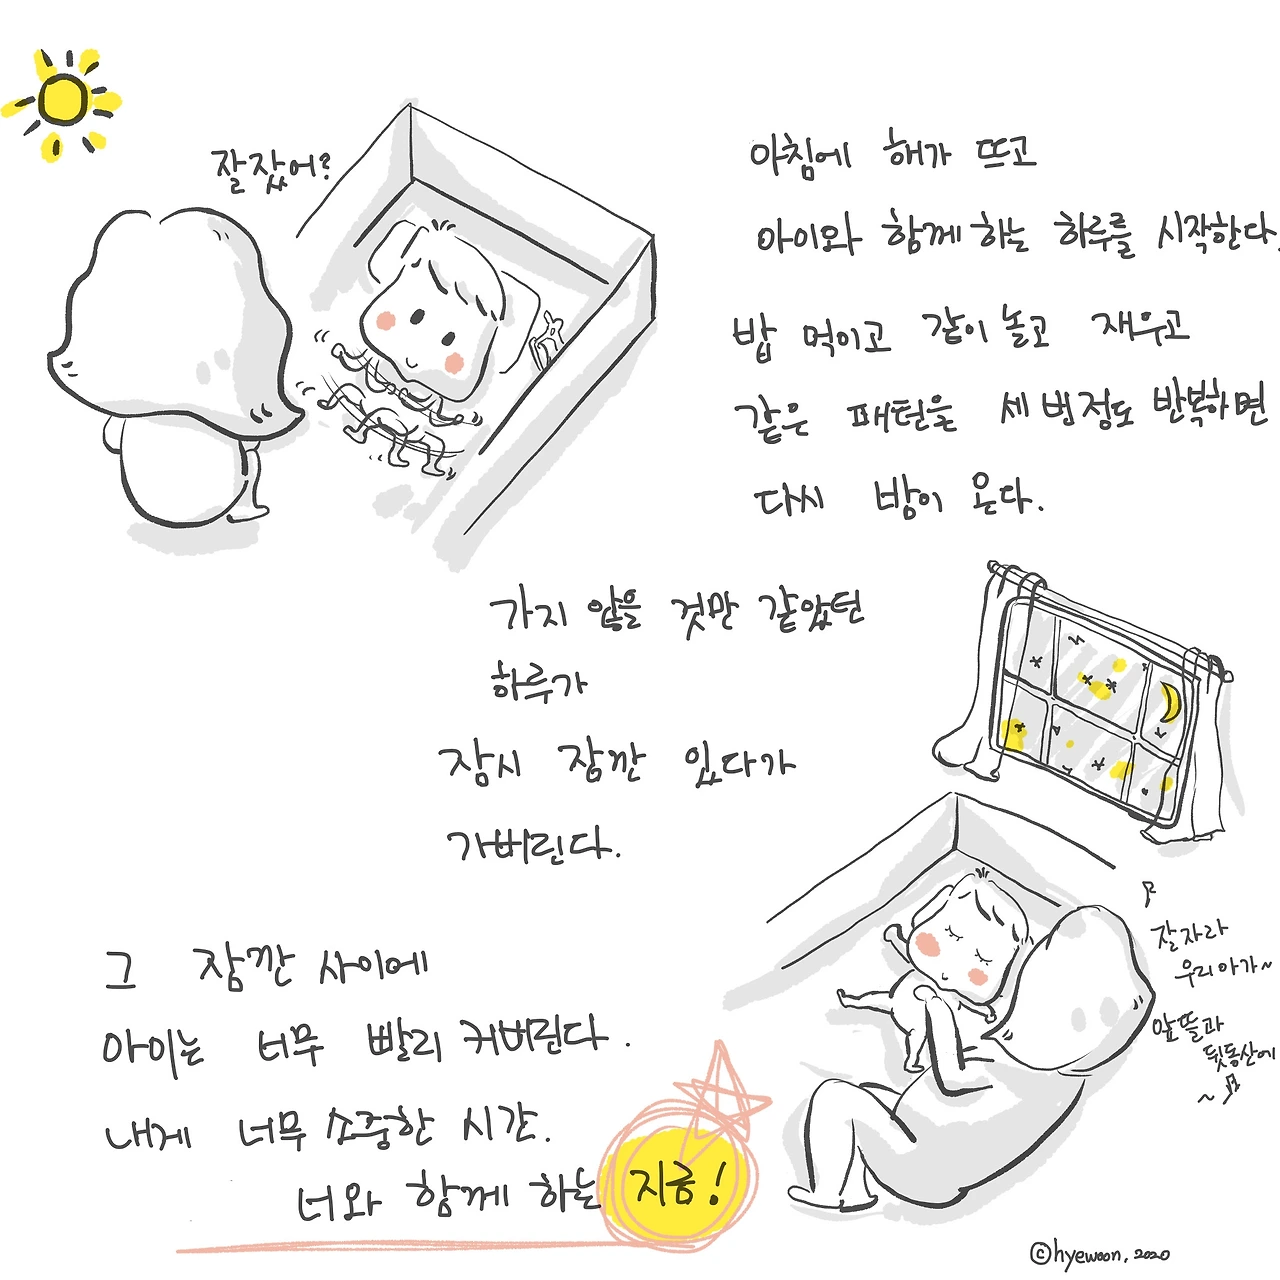 잘잤어?
아침에 해가 뜨고
아이와 함께하는 하루를 시작한다.
밥 먹이고 같이 놀고 재우고
같은 패턴을 세 번정도 반복하면
다시 밤이 온다.
가지 않을 것만 같았던
하루가
잠시 잠깐 있다가
가버린다.
잘자라
우리아가~
앞뜰과
뒷동산에
~
그 잠깐 사이에
아이는 너무 빨리 커버린다.
내게 너무 소중한 시간.
너와 함께 하는 지금!
©hyewoon, 2020